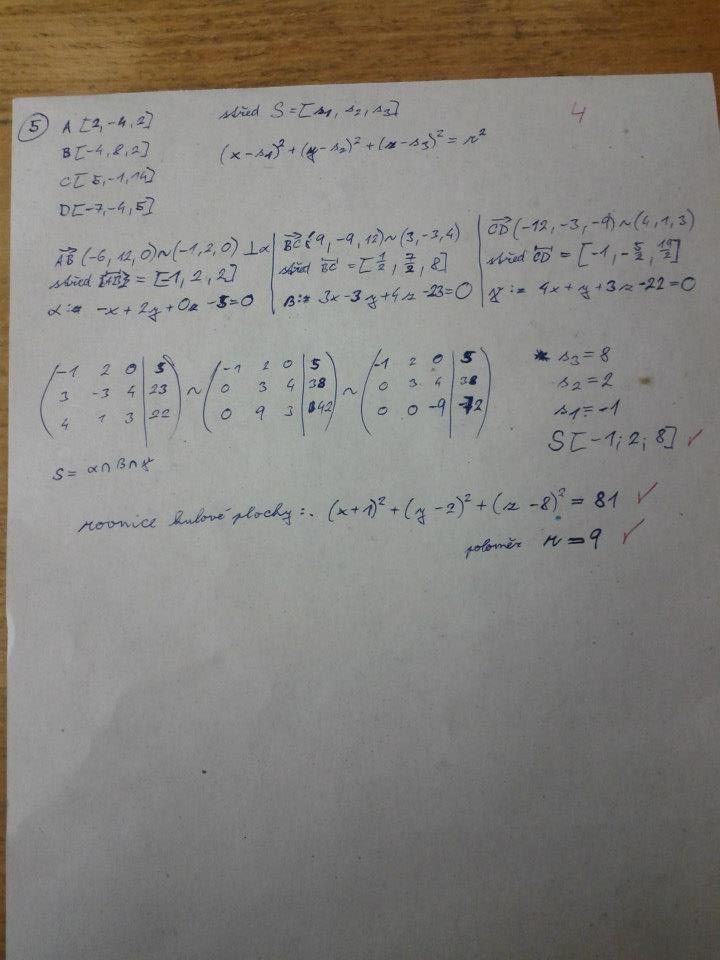 5
A [2, -4, 2]
B [-4, 8, 2]
C [5, -1, 14]
D [-7, -4, 5]
střed S = [s1, s2, s3]
(x-s1)² + (y-s2)² + (z-s3)² = r²
4
AB (-6, 12, 0) ~ (-1, 2, 0) ⊥ α
střed = [-1, 2, 2]
α: -x + 2y + 0z - 5 = 0
BC (9, -9, 12) ~ (3, -3, 4)
střed BC = [1/2, 7/2, 8]
β: 3x - 3y + 4z - 23 = 0
CD (-12, -3, -9) ~ (4, 1, 3)
střed CD = [-1, -5/2, 19/2]
γ: 4x + y + 3z - 22 = 0
(-1 2 0 | 5) ~ (-1 2 0 | 5) ~ (-1 2 0 | 5)
(3 -3 4 | 23) (0 3 4 | 38) (0 3 4 | 38)
(4 1 3 | 22) (0 9 3 | 42) (0 0 -9 | -72)
s3 = 8
s2 = 2
s1 = -1
S [-1; 2; 8] ✓
S = α ∩ β ∩ γ
rovnice kulové plochy: (x+1)² + (y-2)² + (z-8)² = 81 ✓
poloměr r = 9 ✓